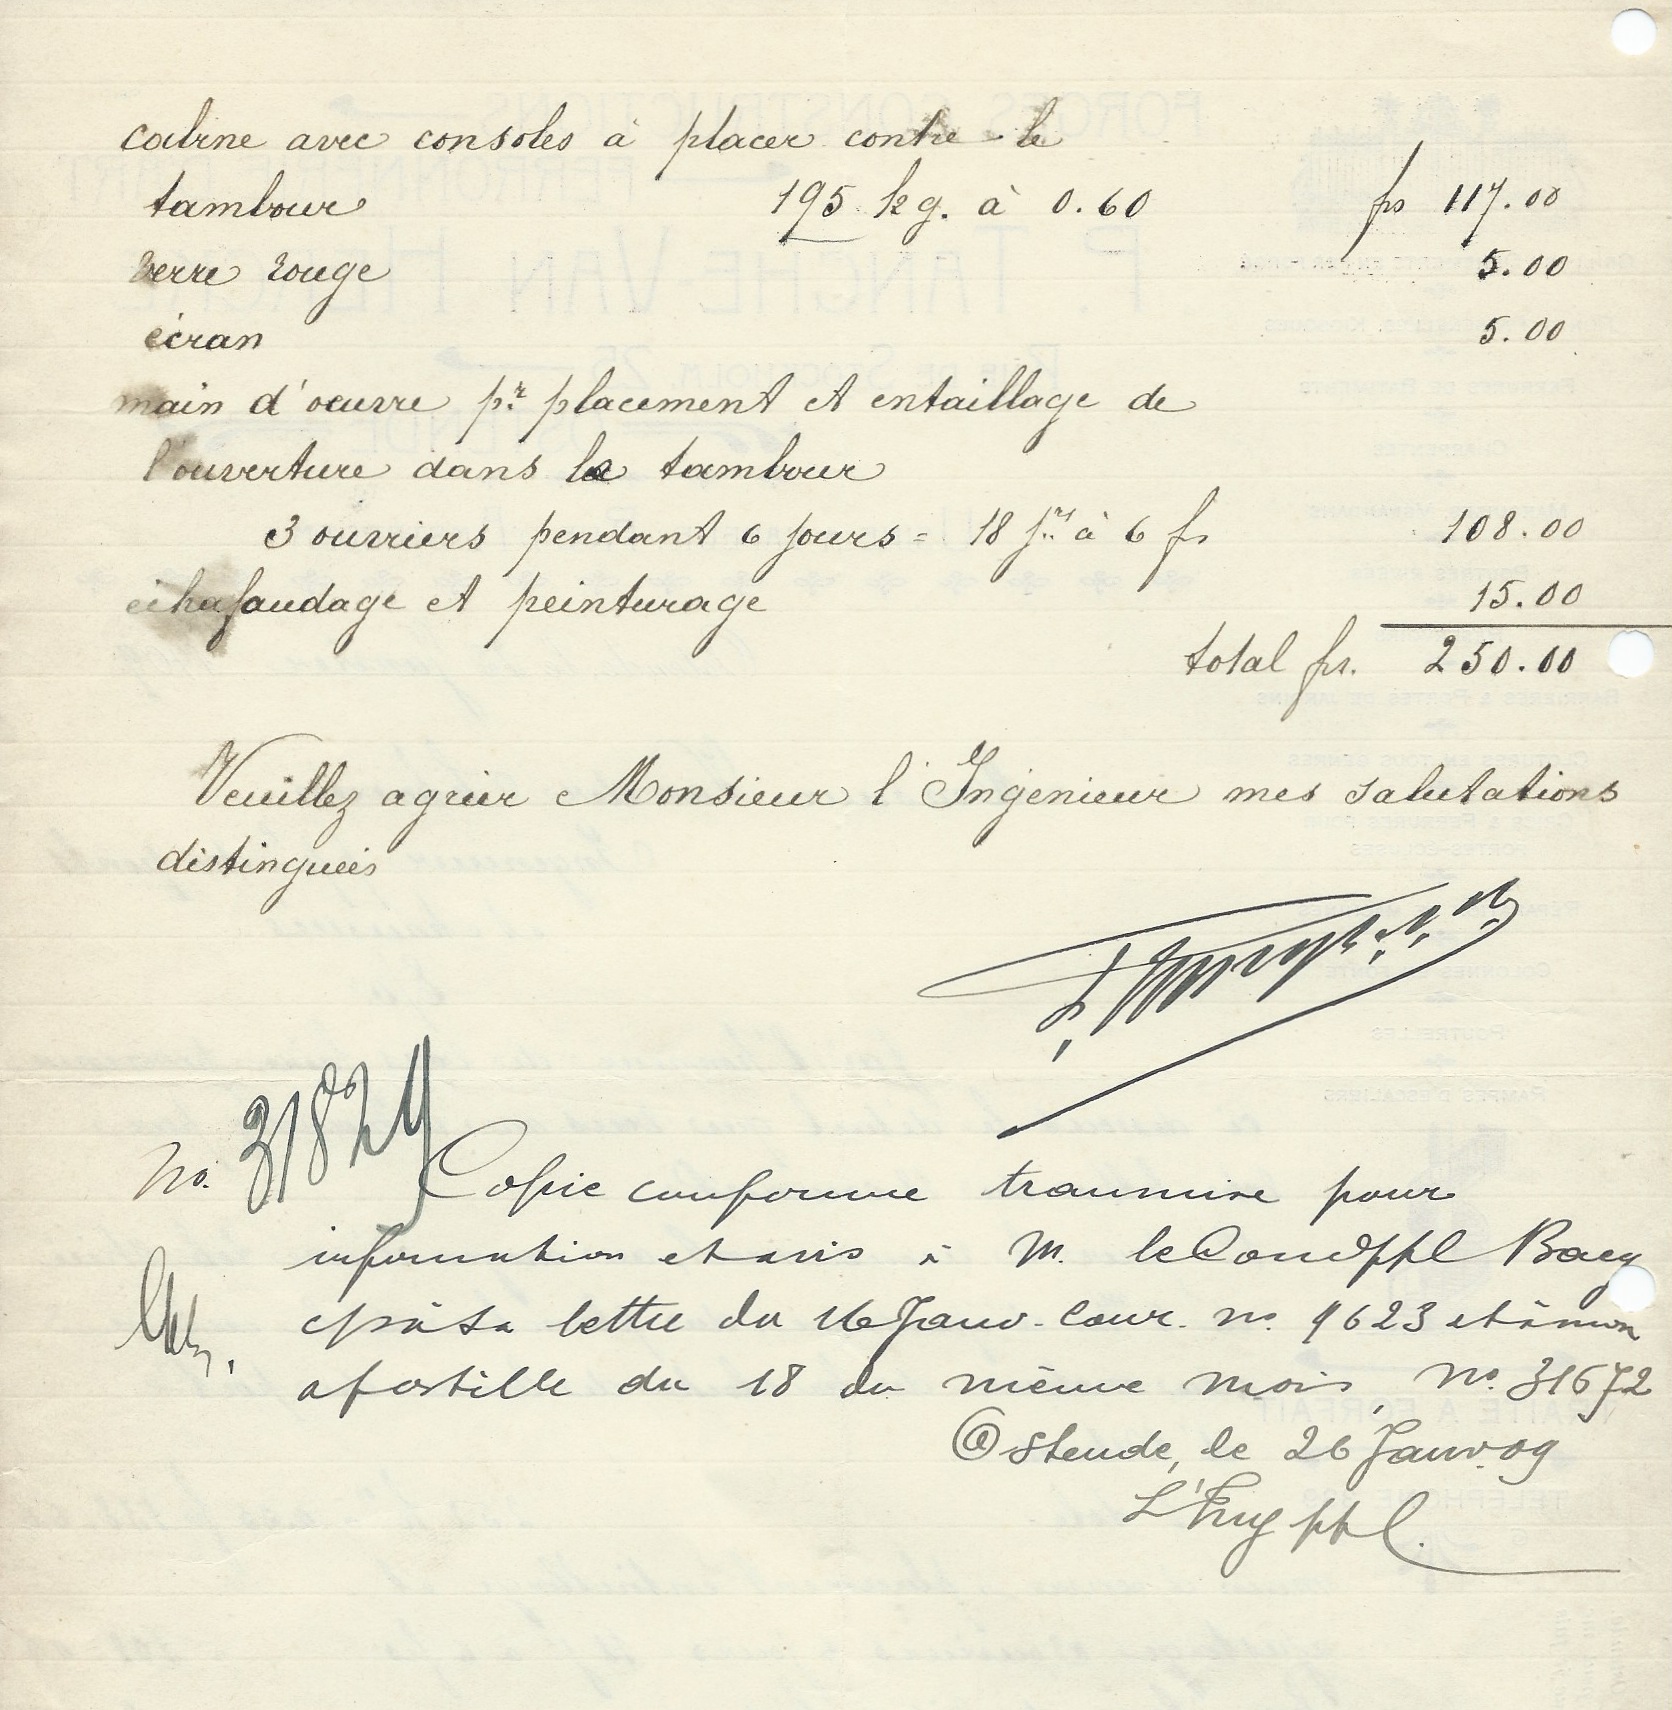 cabine avec consoles à placer contre le
tambour 195 kg. à 0.60 frs 117.00
verre rouge 5.00
écran 5.00
main d'oeuvre pr. placement et entaillage de
l'ouverture dans le tambour
3 ouvriers pendant 6 jours = 18 jrs à 6 fr 108.00
échafaudage et peinturage 15.00
total frs. 250.00
Veuillez agréer Monsieur l'Ingénieur mes salutations
distinguées
No. 31829
Copie conforme transmise pour
information et avis à M. le Cond ppl Bacq
à sa lettre du 16 Janv. cour. no. 9623 et à mon
apostille du 18 du même mois, No. 31672
Ostende, le 26 Janv. 09
L'Ing ppl.